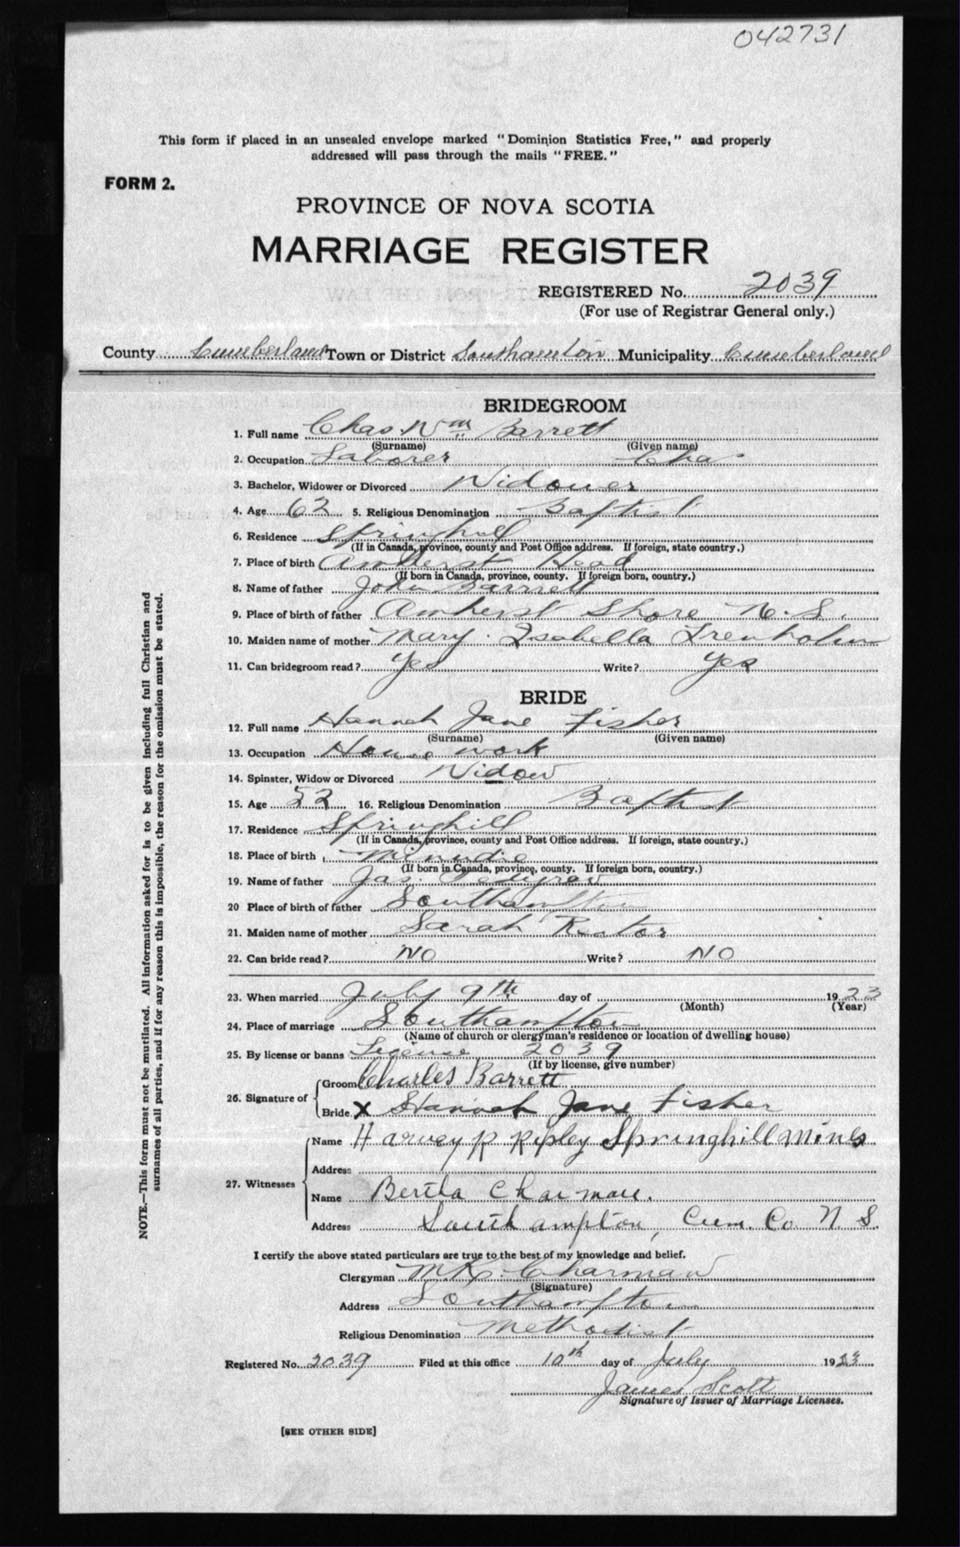 042731
This form if placed in an unsealed envelope marked "Dominion Statistics Free," and properly
addressed will pass through the mails "FREE."
FORM 2.
PROVINCE OF NOVA SCOTIA
MARRIAGE REGISTER
REGISTERED No. 2039
(For use of Registrar General only.)
County Cumberland Town or District Southamton Municipality Cumberland
BRIDEGROOM
1. Full name Chas. Wm Barrett
(Surname) (Given name)
2. Occupation Laborer Chas
3. Bachelor, Widower or Divorced Widower
4. Age 62 5. Religious Denomination Baptist
6. Residence Springhill
(If in Canada, province, county and Post Office address. If foreign, state country.)
7. Place of birth Amherst Head
(If born in Canada, province, county. If foreign born, country.)
8. Name of father John Barrett
9. Place of birth of father Amherst Shore N.S.
10. Maiden name of mother Mary Isabella Trenholm
11. Can bridegroom read? Yes Write? Yes
BRIDE
12. Full name Hannah Jane Fisher
(Surname) (Given name)
13. Occupation House work
14. Spinster, Widow or Divorced Widow
15. Age 52 16. Religious Denomination Baptist
17. Residence Springhill
(If in Canada, province, county and Post Office address. If foreign, state country.)
18. Place of birth Minudie
(If born in Canada, province, county. If foreign born, country.)
19. Name of father Jas.
20 Place of birth of father Southamton
21. Maiden name of mother Sarah Rector
22. Can bride read? NO Write? NO
23. When married July 9th day of 1923
(Month) (Year)
24. Place of marriage Southampton
(Name of church or clergyman's residence or location of dwelling house)
25. By license or banns License 2039
(If by license, give number)
26. Signature of Groom Charles Barrett
Bride X Hannah Jane Fisher
27. Witnesses Name Harvey R Ripley Springhill Mines
Address
Name Bertla Charman.
Address Southampton, Cum. Co N.S.
I certify the above stated particulars are true to the best of my knowledge and belief.
Clergyman Charman
(Signature)
Address Southampton
Religious Denomination Methodist
Registered No. 2039 Filed at this office 10th day of July 1923
James Scott
Signature of Issuer of Marriage Licenses.
[SEE OTHER SIDE]
NOTE.—This form must not be mutilated. All information asked for is to be given including full Christian and
surnames of all parties, and if for any reason this is impossible, the reason for the omission must be stated.